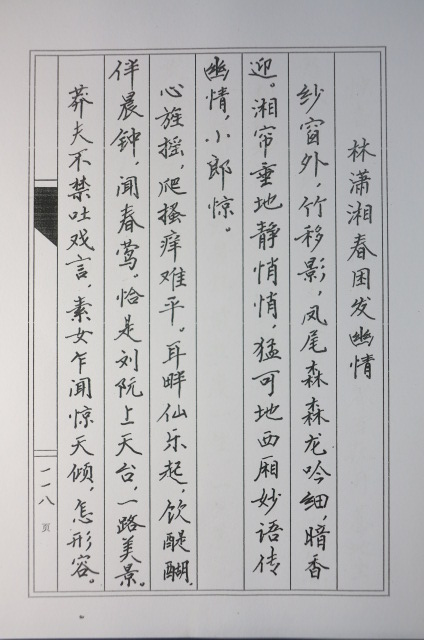 林潇湘春困发幽情
纱窗外，竹移影，凤尾森森龙吟细，暗香
迎。湘帘垂地静悄悄，猛可地西厢妙语传
幽情，小郎惊。
心旌摇，爬搔痒难平。耳畔仙乐起，饮醍醐
伴晨钟，闻春莺。恰是刘阮上天台，一路美景。
莽夫不禁吐戏言，素女乍闻惊天倾，怎形容。
一一八
页